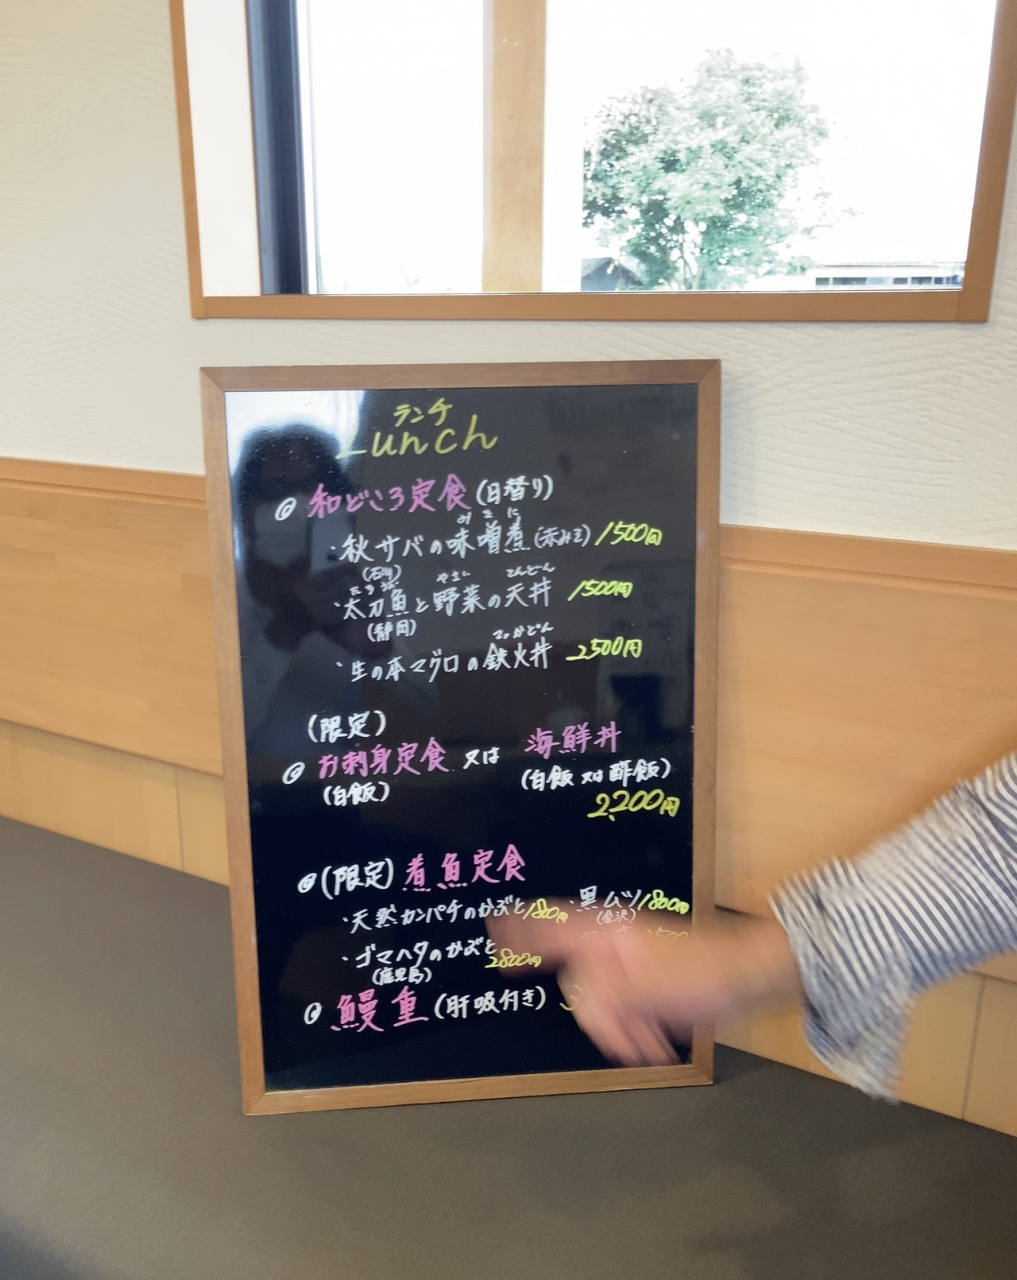 ランチ
Lunch
◎ 和どころ定食(日替り)
みそに
・秋サバの味噌煮(赤みそ) 1500円
(石川)
たちうお やさい てんどん
・太刀魚と野菜の天丼 1500円
(静岡)
てっかどん
・生の本マグロの鉄火丼 2500円
(限定)
◎ お刺身定食 又は 海鮮丼
(白飯) (白飯 又は 酢飯)
2,200円
◎ (限定) 煮魚定食
・天然カンパチのかぶと 1800円 ・黒ムツ 1800円
(金沢)
・ゴマハタのかぶと 2800円
(鹿児島)
◎ 鰻重 (肝吸付き) 3